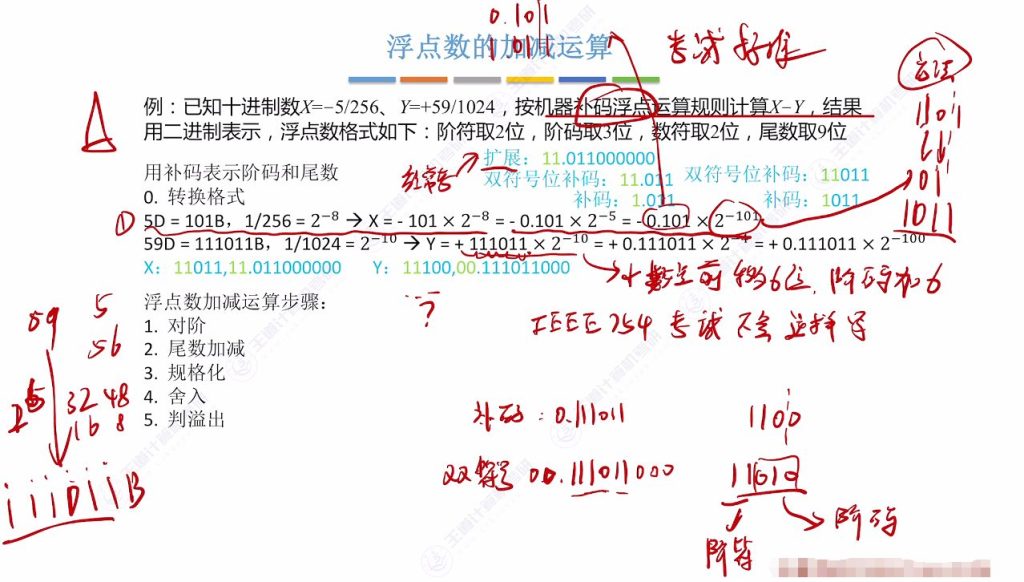 0.101
1 011
浮点数的加减运算
考试标准
例：已知十进制数X=−5/256、Y=+59/1024，按机器补码浮点运算规则计算X−Y，结果
用二进制表示，浮点数格式如下：阶符取2位，阶码取3位，数符取2位，尾数取9位
1101
011
1011
扩展：11.011000000
用补码表示阶码和尾数
双符号位补码：11.011 双符号位补码：11011
0. 转换格式
补码：1.011 补码：1011
① 5D = 101B，1/256 = 2⁻⁸ → X = - 101 × 2⁻⁸ = - 0.101 × 2⁻⁵ = - 0.101 × 2⁻¹⁰¹
59D = 111011B，1/1024 = 2⁻¹⁰ → Y = + 111011 × 2⁻¹⁰ = + 0.111011 × 2⁻⁴ = + 0.111011 × 2⁻¹⁰⁰
X：11011,11.011000000 Y：11100,00.111011000
小数点前移6位，阶码加6
?
IEEE 754 考试不会这样写
浮点数加减运算步骤：
1. 对阶
2. 尾数加减
3. 规格化
4. 舍入
5. 判溢出
59 5
56
32 48
16 8
111011B
补码：0.111011
1100
双符号 00.111011000
阶码
阶符